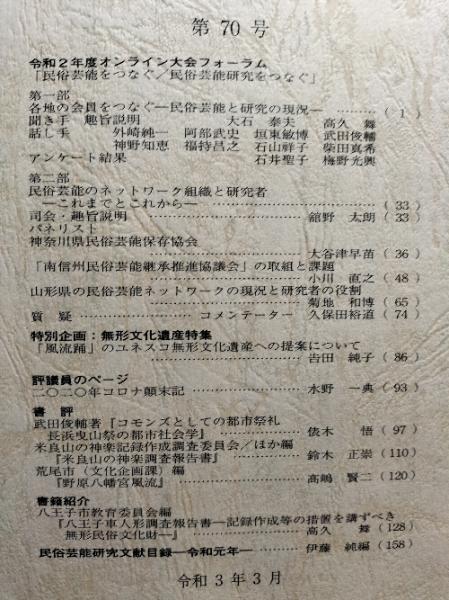 第 70 号
令和2年度オンライン大会フォーラム
「民俗芸能をつなぐ／民俗芸能研究をつなぐ」
第一部
各地の会員をつなぐ―民俗芸能と研究の現況― ………( 1 )
聞き手 趣旨説明 大石 泰夫 高久 舞
話し手 外崎純一 阿部武史 垣東敏博 武田俊輔
神野知恵 福持昌之 石山祥子 柴田真希
アンケート結果 石井聖子 梅野光興
第二部
民俗芸能のネットワーク組織と研究者
―これまでとこれから― ………………………( 33 )
司会・趣旨説明 ………………… 舘野 太朗 ( 33 )
パネリスト
神奈川県民俗芸能保存協会
………………… 大谷津早苗 ( 36 )
「南信州民俗芸能継承推進協議会」の取組と課題
………………… 小川 直之 ( 48 )
山形県の民俗芸能ネットワークの現況と研究者の役割
………………… 菊地 和博 ( 65 )
質 疑 ………… コメンテーター 久保田裕道 ( 74 )
特別企画：無形文化遺産特集
「風流踊」のユネスコ無形文化遺産への提案について
………………… 吉田 純子 ( 86 )
評議員のページ
二〇二〇年コロナ顛末記 ………… 水野 一典 ( 93 )
書 評
武田俊輔著『コモンズとしての都市祭礼
長浜曳山祭の都市社会学』 ………… 俵木 悟 ( 97 )
米良山の神楽記録作成調査委員会／ほか編
『米良山の神楽調査報告書』 ………… 鈴木 正崇 (110)
荒尾市（文化企画課）編
『野原八幡宮風流』 ………… 髙嶋 賢二 (120)
書籍紹介
八王子市教育委員会編
『八王子車人形調査報告書―記録作成等の措置を講ずべき
無形民俗文化財―』 ………… 高久 舞 (128)
民俗芸能研究文献目録―令和元年― …… 伊藤 純編 (158)
令和 3 年 3 月